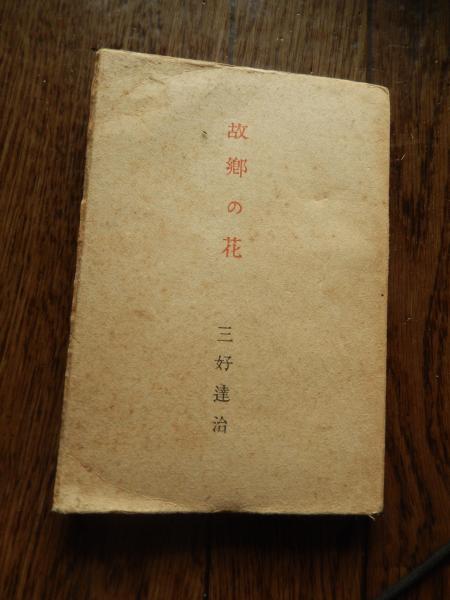 故鄕の花
三好達治